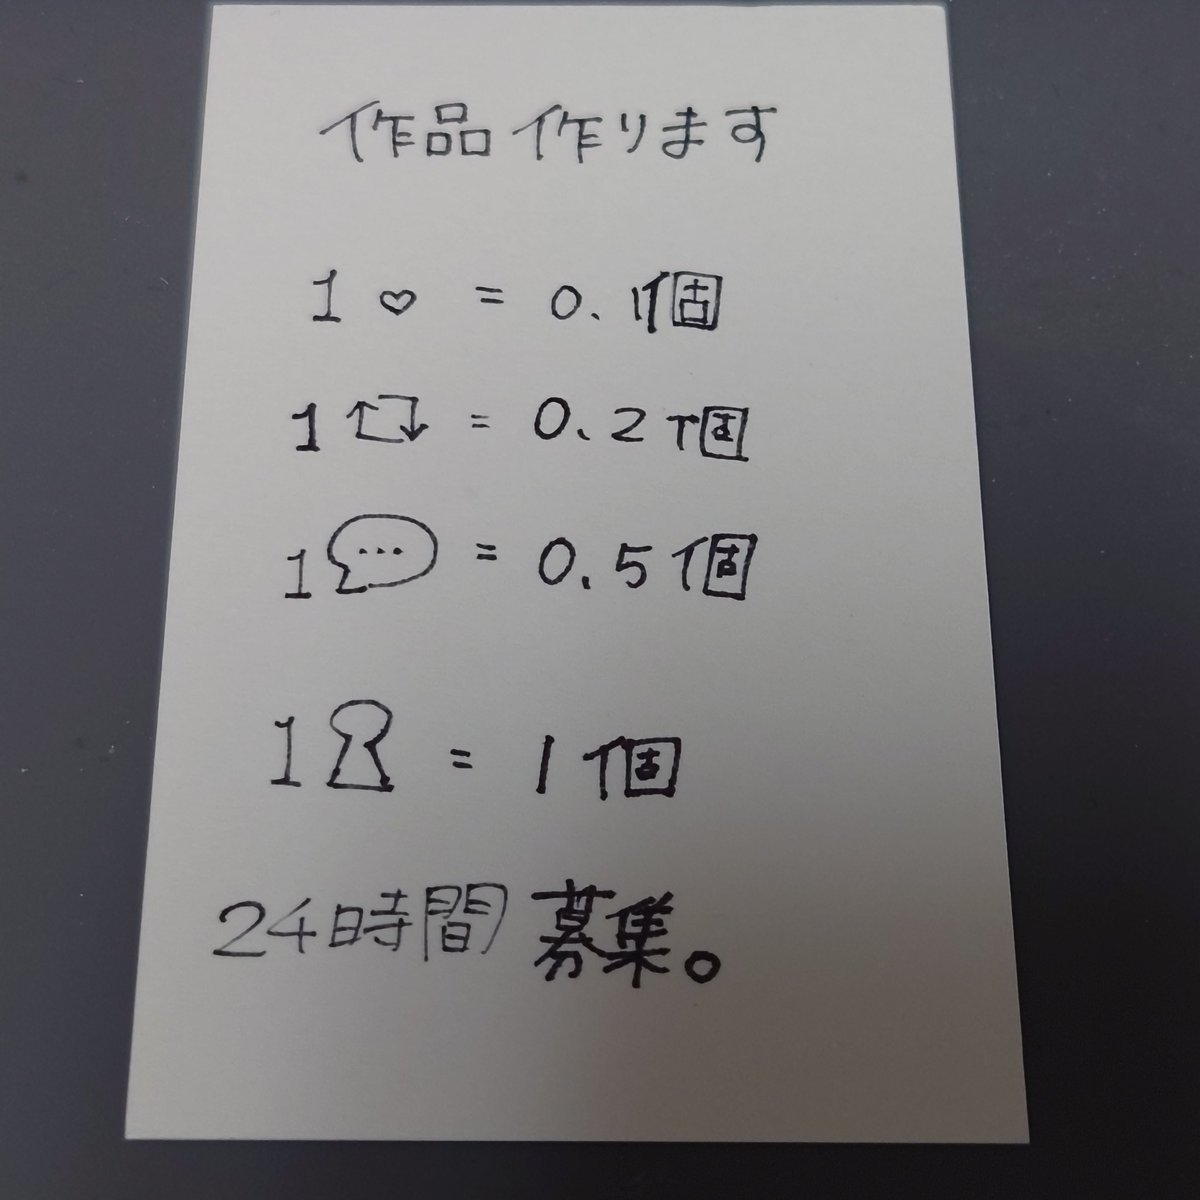 作品作ります
1♡ = 0.1個
1🔁 = 0.2個
1💬 = 0.5個
1👤 = 1個
24時間 募集。